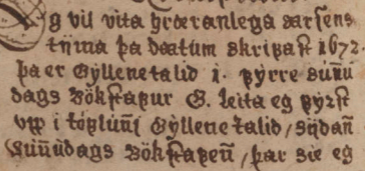 Eg vil vita hræranlega aarsens
tijma þa dætum skrifast 1672.
þa er Gyllenetalid 1. fyrre sun̄u
dags Bökstafur G. leita eg fyrst
upp i töflun̄i Gyllene talid / sijdan̄
Sun̄udags Bökstafen̄ / þar sie eg